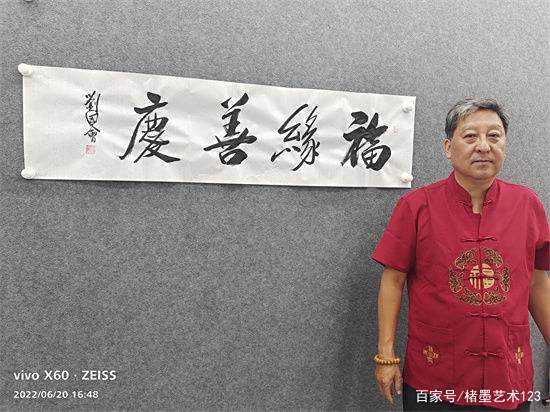 福緣善慶
劉會
福
vivo X60 · ZEISS
2022/06/20 16:48
百家号/楮墨艺术123